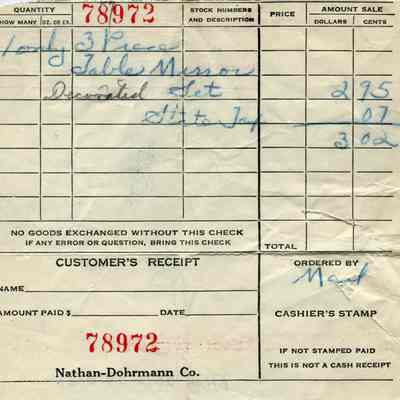 QUANTITY 78972 STOCK NUMBERS AND DESCRIPTION PRICE AMOUNT SALE
HOW MANY OZ. DZ. EA. DOLLARS CENTS
1 only 3 Piece
Table Mirror
Decorated Set 2 95
State Tax 07
3 02
NO GOODS EXCHANGED WITHOUT THIS CHECK
IF ANY ERROR OR QUESTION, BRING THIS CHECK
TOTAL
CUSTOMER'S RECEIPT ORDERED BY
NAME
AMOUNT PAID $ DATE CASHIER'S STAMP
78972
IF NOT STAMPED PAID
Nathan-Dohrmann Co. THIS IS NOT A CASH RECEIPT